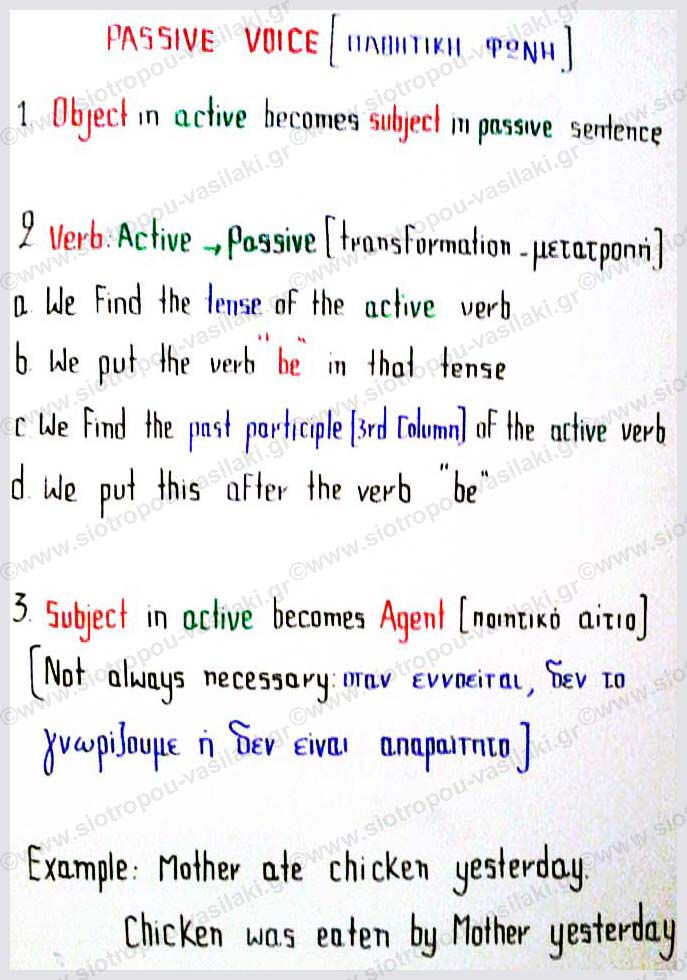 PASSIVE VOICE [ΠΑΘΗΤΙΚΗ ΦΩΝΗ]
1. Object in active becomes subject in passive sentence
2 Verb: Active → Passive [transformation - μετατροπή]
a. We Find the tense of the active verb
b. We put the verb "be" in that tense
c We Find the past participle [3rd Column] of the active verb
d. We put this after the verb "be"
3. Subject in active becomes Agent [ποιητικό αίτιο]
[Not always necessary: οταν εννοείται, δεν το
γνωρίζουμε ή δεν είναι απαραίτητο]
Example: Mother ate chicken yesterday.
Chicken was eaten by Mother yesterday
©www.siotropou-vasilaki.gr